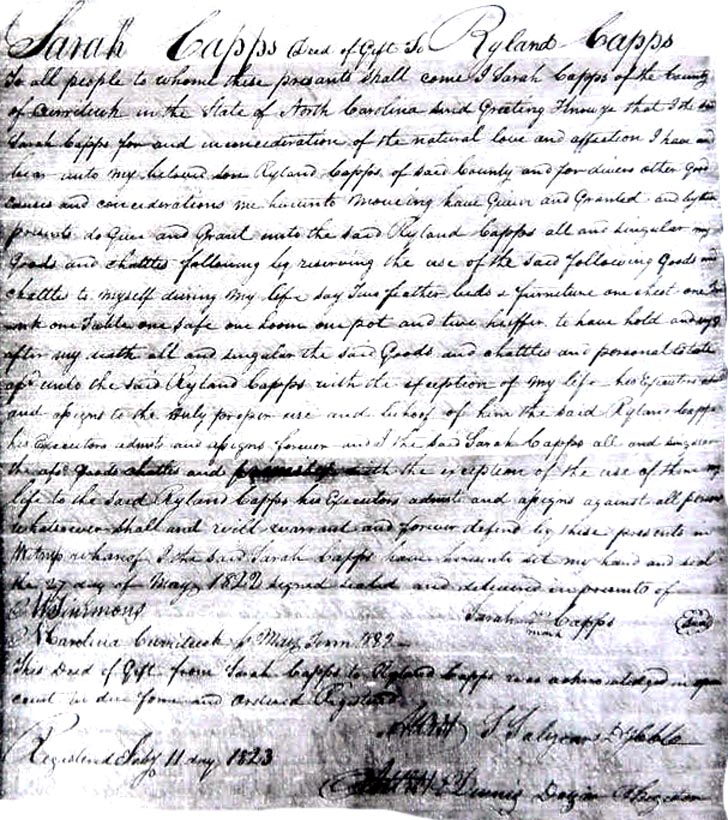 Sarah Capps Deed of Gift To Ryland Capps
To all people to whom these presents shall come I Sarah Capps of the County
of Currituck in the State of North Carolina send Greeting Know ye that I the sd
Sarah Capps for and inconcideration of the natural love and affection I have and
bear unto my beloved son Ryland Capps of said County and for divers other Good
causes and conciderations me hereunto moveing have Given and Granted and by these
presents do Give and Grant unto the said Ryland Capps all and singular my
Goods and chattles following by reserving the use of the said following Goods and
chattles to myself during my life say Two feather beds & furniture one chest one
one Table one safe one loom one pot and two heiffer to have hold and
after my death all and singular the said Goods and chattles and personal Estate
unto the said Ryland Capps with the exception of my life his Executors
and assigns to the only proper use and behoof of him the said Ryland Capps
his Executors admrs and assigns forever and I the said Sarah Capps all and singular
the afsd Goods chattles and with the exception of the use of them my
life to the said Ryland Capps his Executors admrs and assigns against all persons
whatsoever shall and will warrant and forever defend by these presents in
Witness whereof I the said Sarah Capps have hereunto set my hand and seal
the 27 day of May 1822 signed sealed and delivered in presents of
Simmons
Sarah Capps
mark
Seal
N Carolina Currituck May Term 182
This Deed of Gift from Sarah Capps to Ryland Capps was acknowledged in open
court in due form and ordered Registered
Registered 11 day 1823
Dennis Dozier